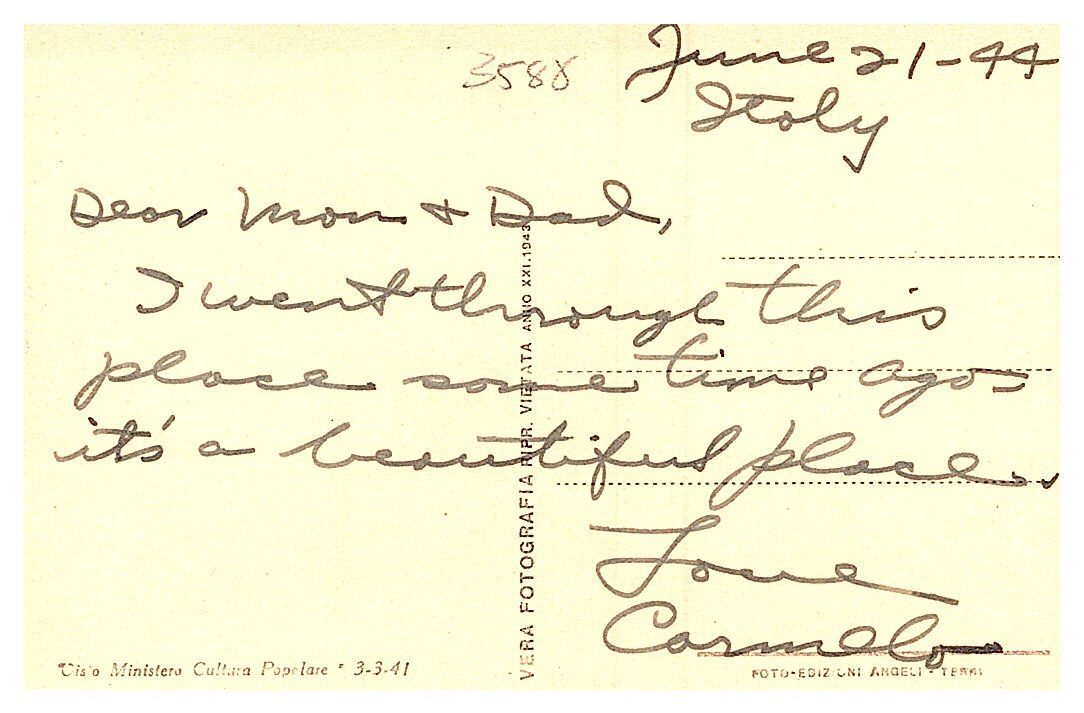 3588
June 21-44
Italy
Dear Mom & Dad,
I went through this
place some time ago -
it's a beautiful place.
Love
Carmelo
VERA FOTOGRAFIA RIPR. VIETATA ANNO XXI.1943
Visto Ministero Cultura Popolare 3-3-41
FOTO-EDIZIONI ANGELI - TERNI